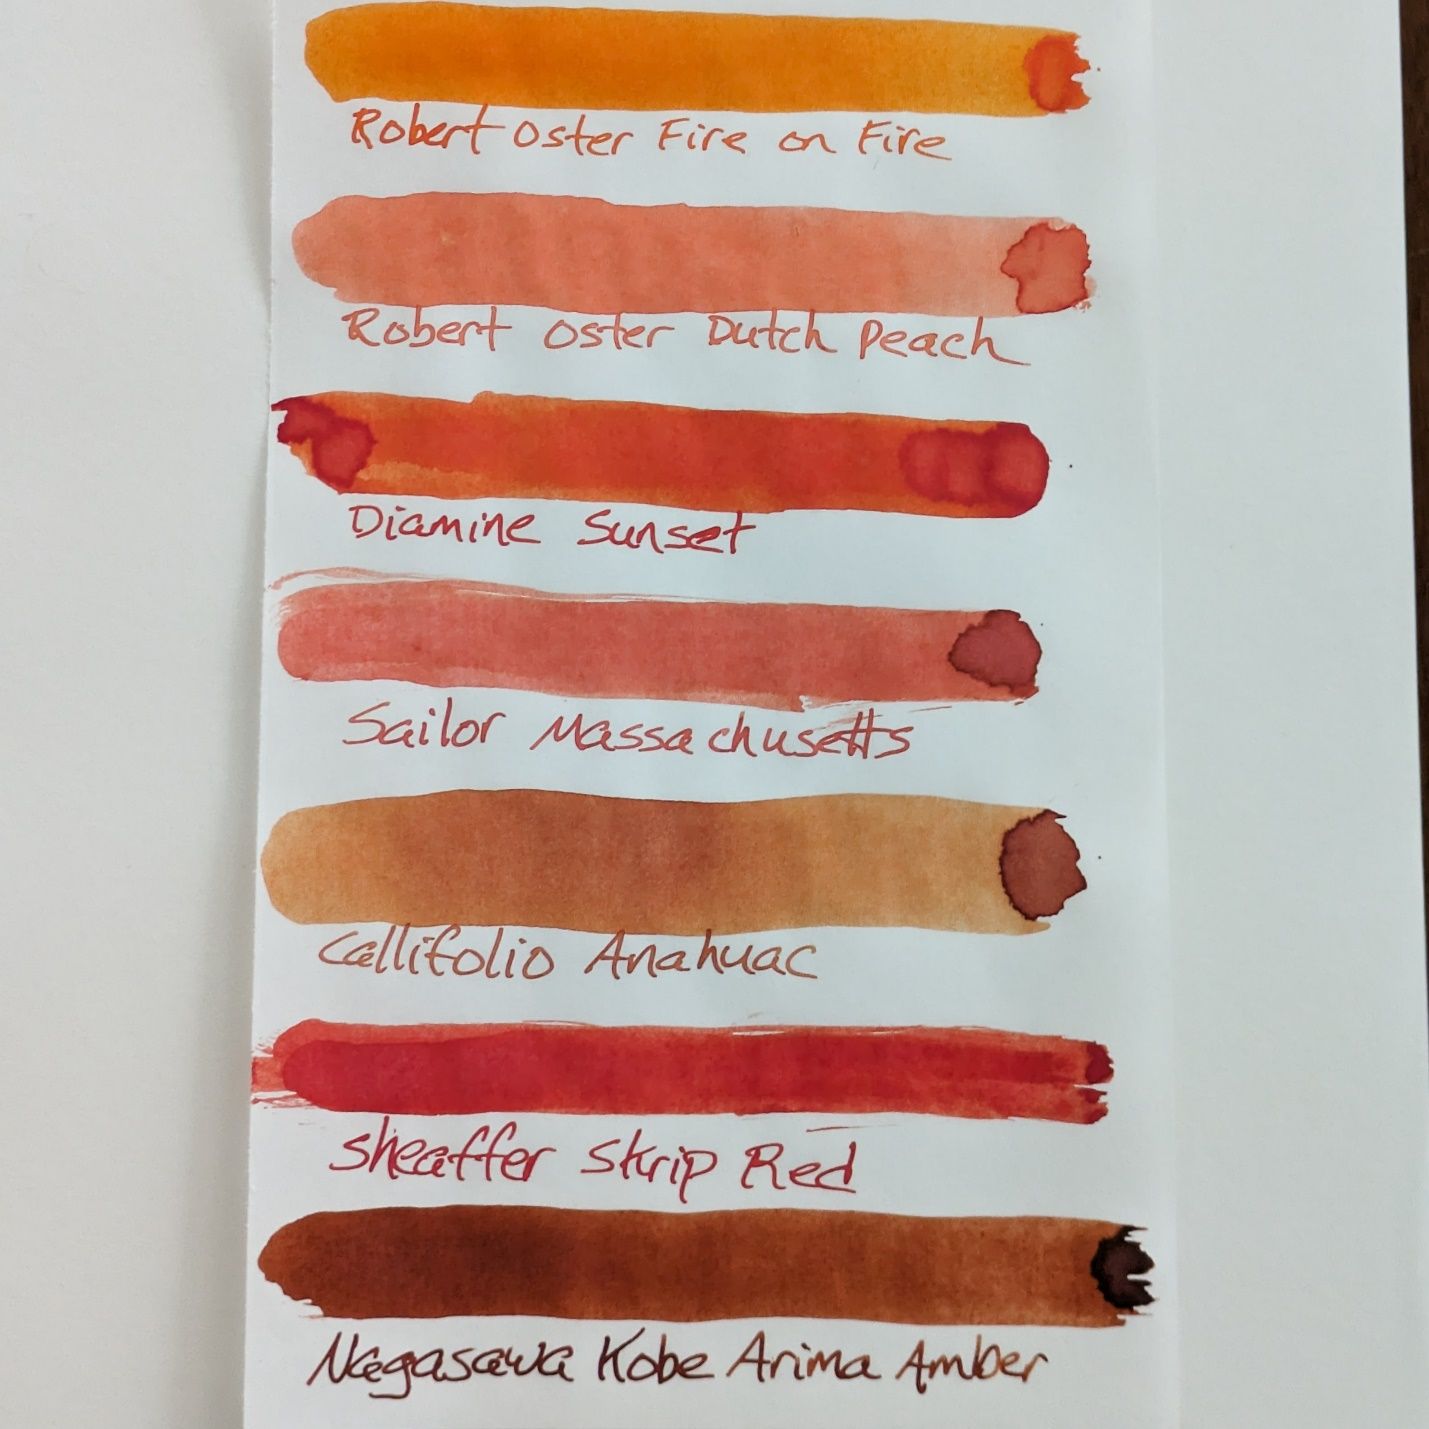 Robert Oster Fire on Fire
Robert Oster Dutch Peach
Diamine Sunset
Sailor Massachusetts
Callifolio Anahuac
Sheaffer Skrip Red
Nagasawa Kobe Arima Amber